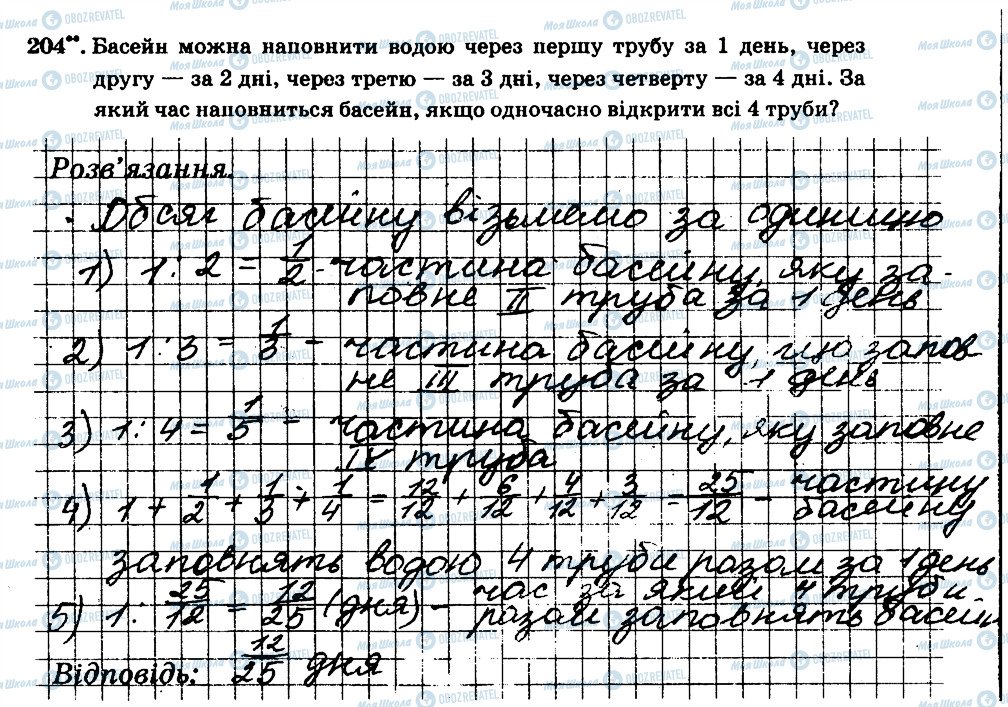 204**. Басейн можна наповнити водою через першу трубу за 1 день, через
другу — за 2 дні, через третю — за 3 дні, через четверту — за 4 дні. За
який час наповниться басейн, якщо одночасно відкрити всі 4 труби?
Розв'язання.
Обсяг басейну візьмемо за одиницю
1) 1 : 2 = 1/2 - частина басейну, яку за-
повне II труба за 1 день
2) 1 : 3 = 1/3 - частина басейну, що запов
не III труба за 1 день
3) 1 : 4 = 1/5 - частина басейну, яку заповне
IV труба
4) 1 + 1/2 + 1/3 + 1/4 = 12/12 + 6/12 + 4/12 + 3/12 = 25/12 - частину
басейну
заповнять водою 4 труби разом за 1 день
5) 1 : 25/12 = 12/25 (дня) - час за який 4 труби
разом заповнять басейн
Відповідь: 12/25 дня